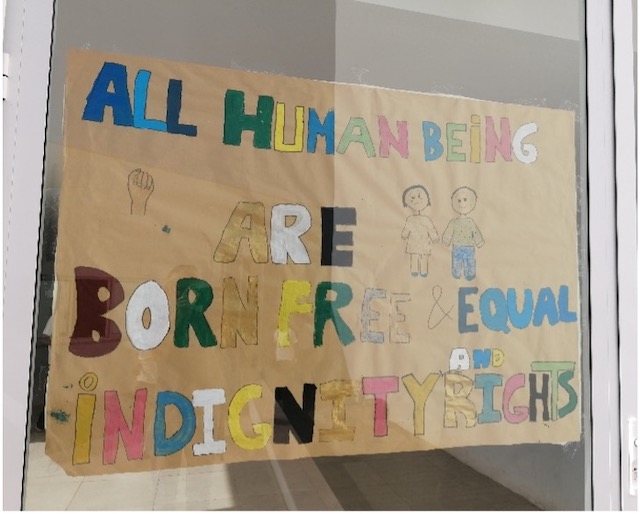 ALL HUMAN BEiNG
ARE
BORN FREE & EQUAL
iNDIGNITY AND RIGHTS